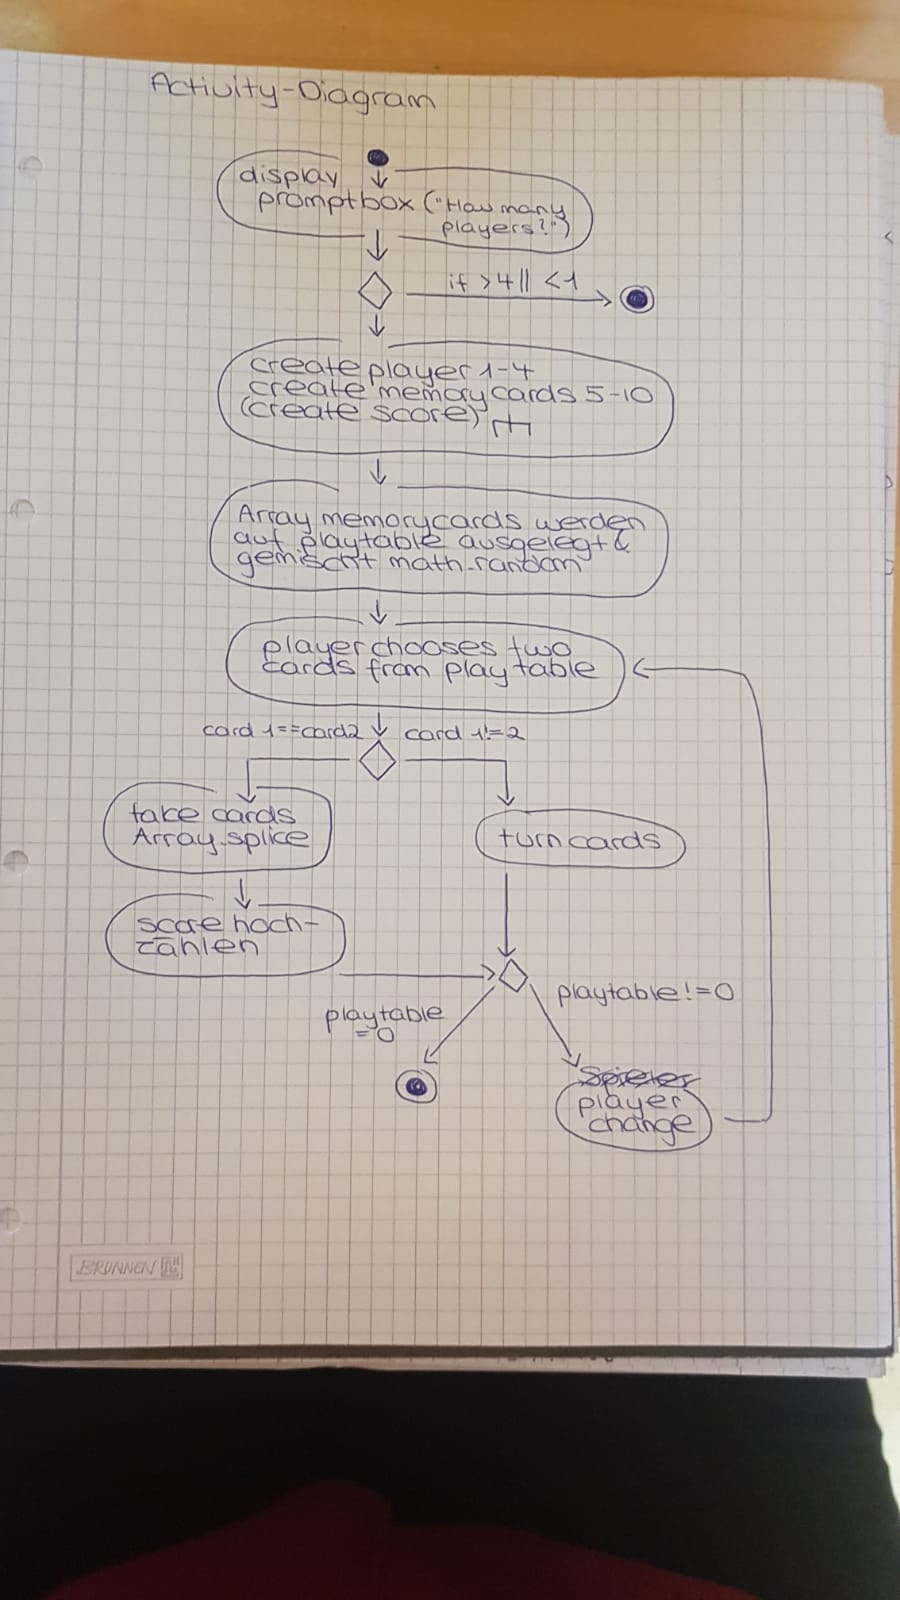 Activity-Diagram
display
promptbox ("How many
players?")
if >4 || <1
create player 1-4
create memorycards 5-10
(create score)
Array memorycards werden
auf playtable ausgelegt &
gemischt math.random
player chooses two
cards from playtable
card 1==card2
card 1!=2
take cards
Array.splice
turn cards
score hoch-
zählen
playtable
=0
playtable!=0
Spieler
player
change
BRUNNEN